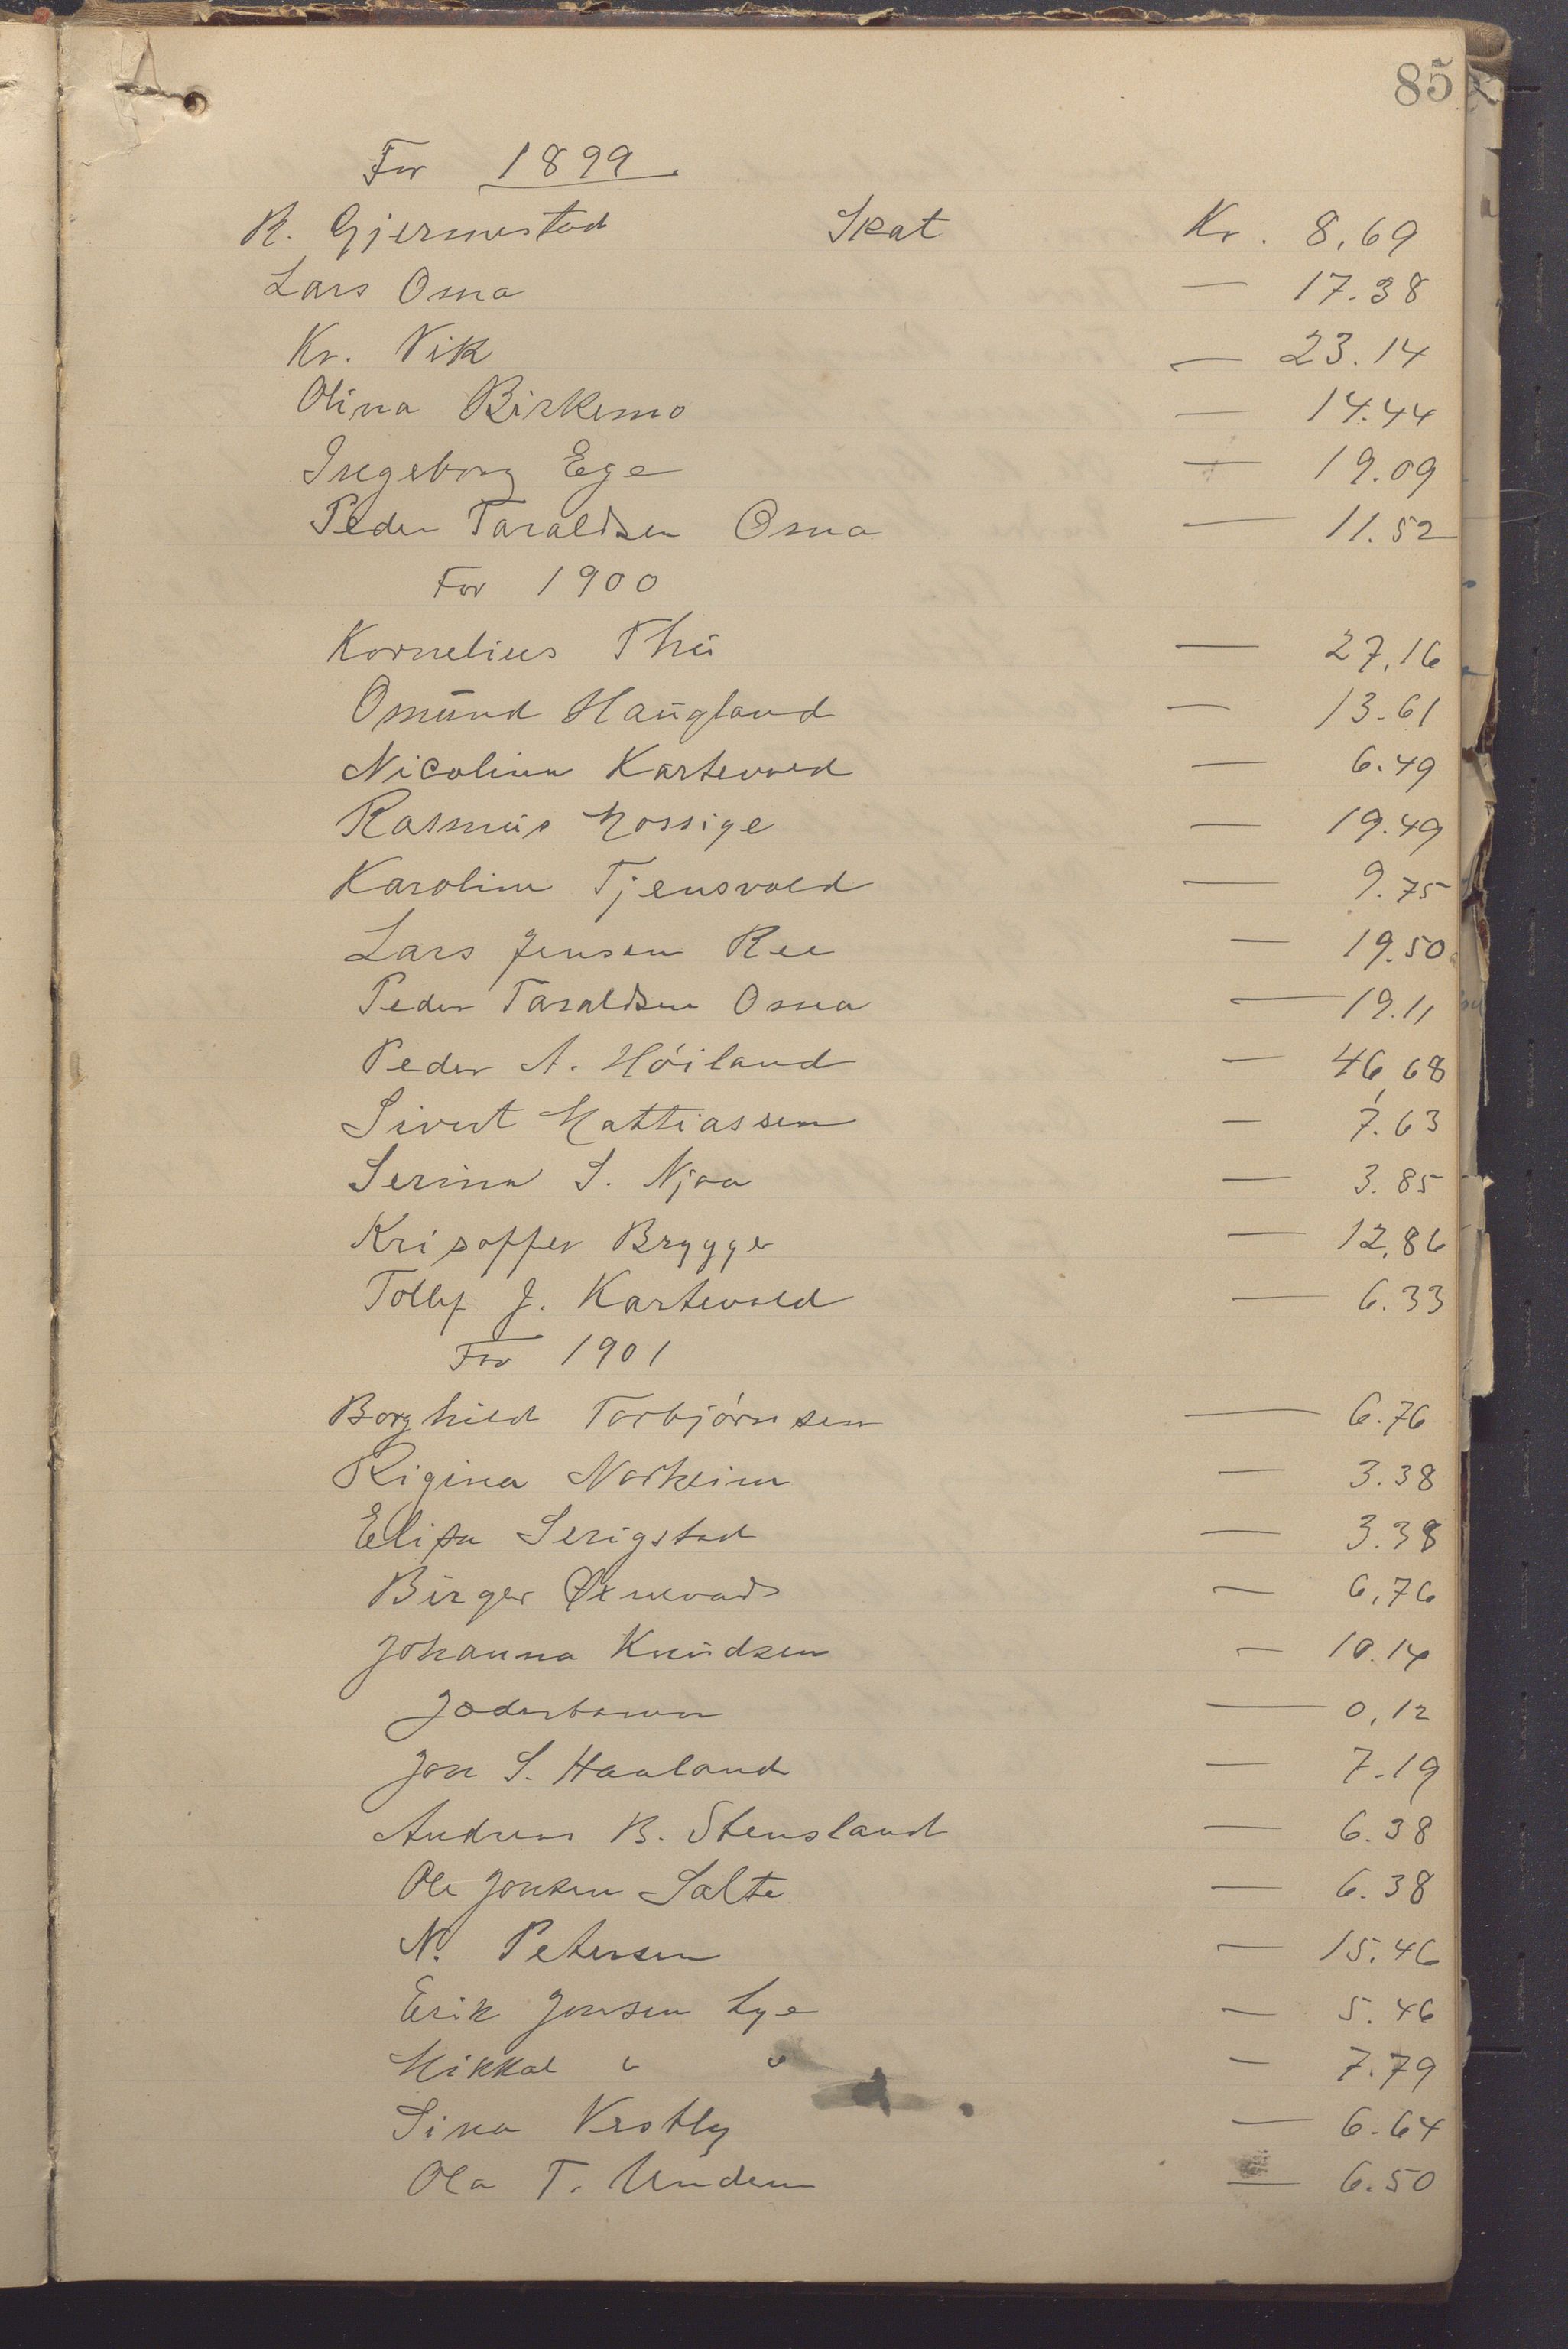 85
For 1899.
R. Gjermestad Skat Kr. 8,69
Lars Oma — 17.38
Kr. Vik — 23.14
Olina Birkemo — 14.44
Ingeborg Ege — 19.09
Peder Taraldsen Oma — 11.52
For 1900
Kornelius Thu — 27,16
Omund Haugland — 13.61
Nicolina Kartevold — 6.49
Rasmus Mossige — 19.49
Karoline Tjensvold — 9.75
Lars Jensen Ree — 19.50
Peder Taraldsen Oma — 19.11
Peder A. Höiland — 46,68
Sivert Mattiassen — 7.63
Serina S. Njaa — 3.85
Krisoffer Brygge — 12,86
Tollef J. Kartevold — 6.33
For 1901
Borghild Torbjørnsen — 6.76
Rigina Norheim — 3.38
Elisa Serigstad — 3.38
Birger Øxnevads — 6,76
Johanna Knudsen — 10.14
Jæderbanen — 0,12
Jon S. Haaland — 7.19
Andreas B. Stensland — 6.38
Ole Jonsen Salte — 6.38
N. Petersen — 15.46
Erik Jonsen Lye — 5.46
Mikkal " " — 7.79
Sina Vestly — 6.64
Ola T. Undem — 6.50